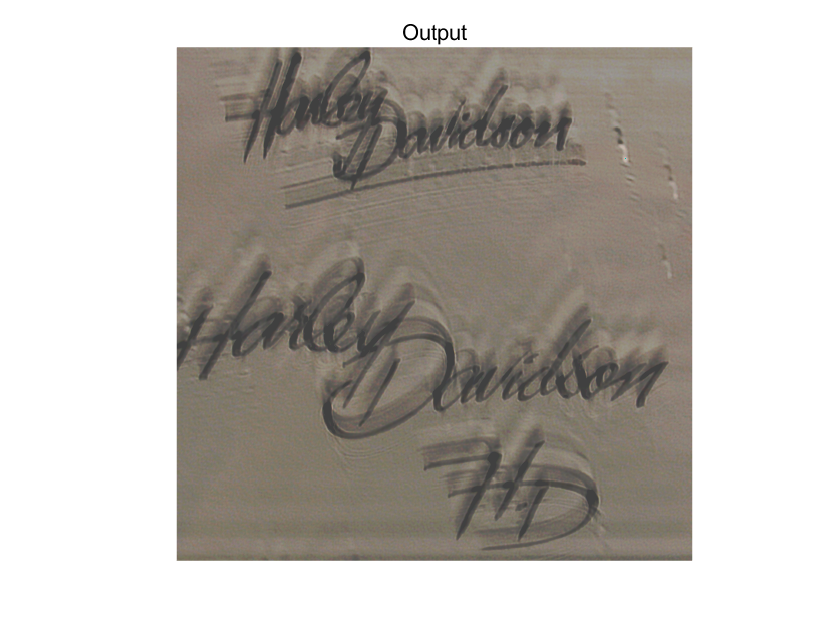 Output
Harley
Davidson
Harley
Davidson
H.D